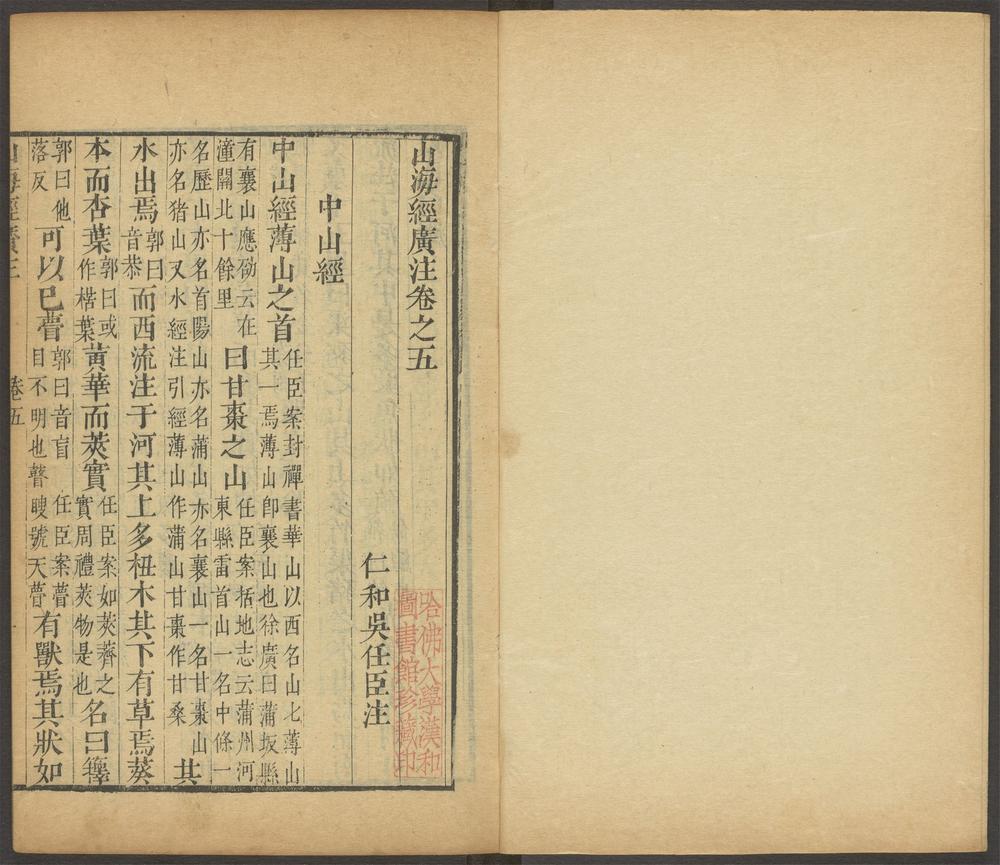 山海經廣注卷之五
仁和吳任臣注
哈佛大學漢和
圖書館珍藏印
中山經
中山經薄山之首任臣案封禪書華山以西名山七薄山
其一焉薄山卽襄山也徐廣曰蒲坂縣
有襄山應劭云在
潼關北十餘里曰甘棗之山任臣案括地志云蒲州河
東縣雷首山一名中條一
名歷山亦名首陽山亦名蒲山亦名襄山一名甘棗山
亦名猪山又水經注引經薄山作蒲山甘棗作甘桑其
水出焉郭曰
音恭而西流注于河其上多杻木其下有草焉葵
本而杏葉郭曰或
作楛葉黃華而莢實任臣案如莢薺之
實周禮莢物是也名曰籜
郭曰他
落反可以已瞢郭曰音盲
目不明也任臣案瞢
瞽瞍號天瞢有獸焉其狀如
山海經廣主 卷五